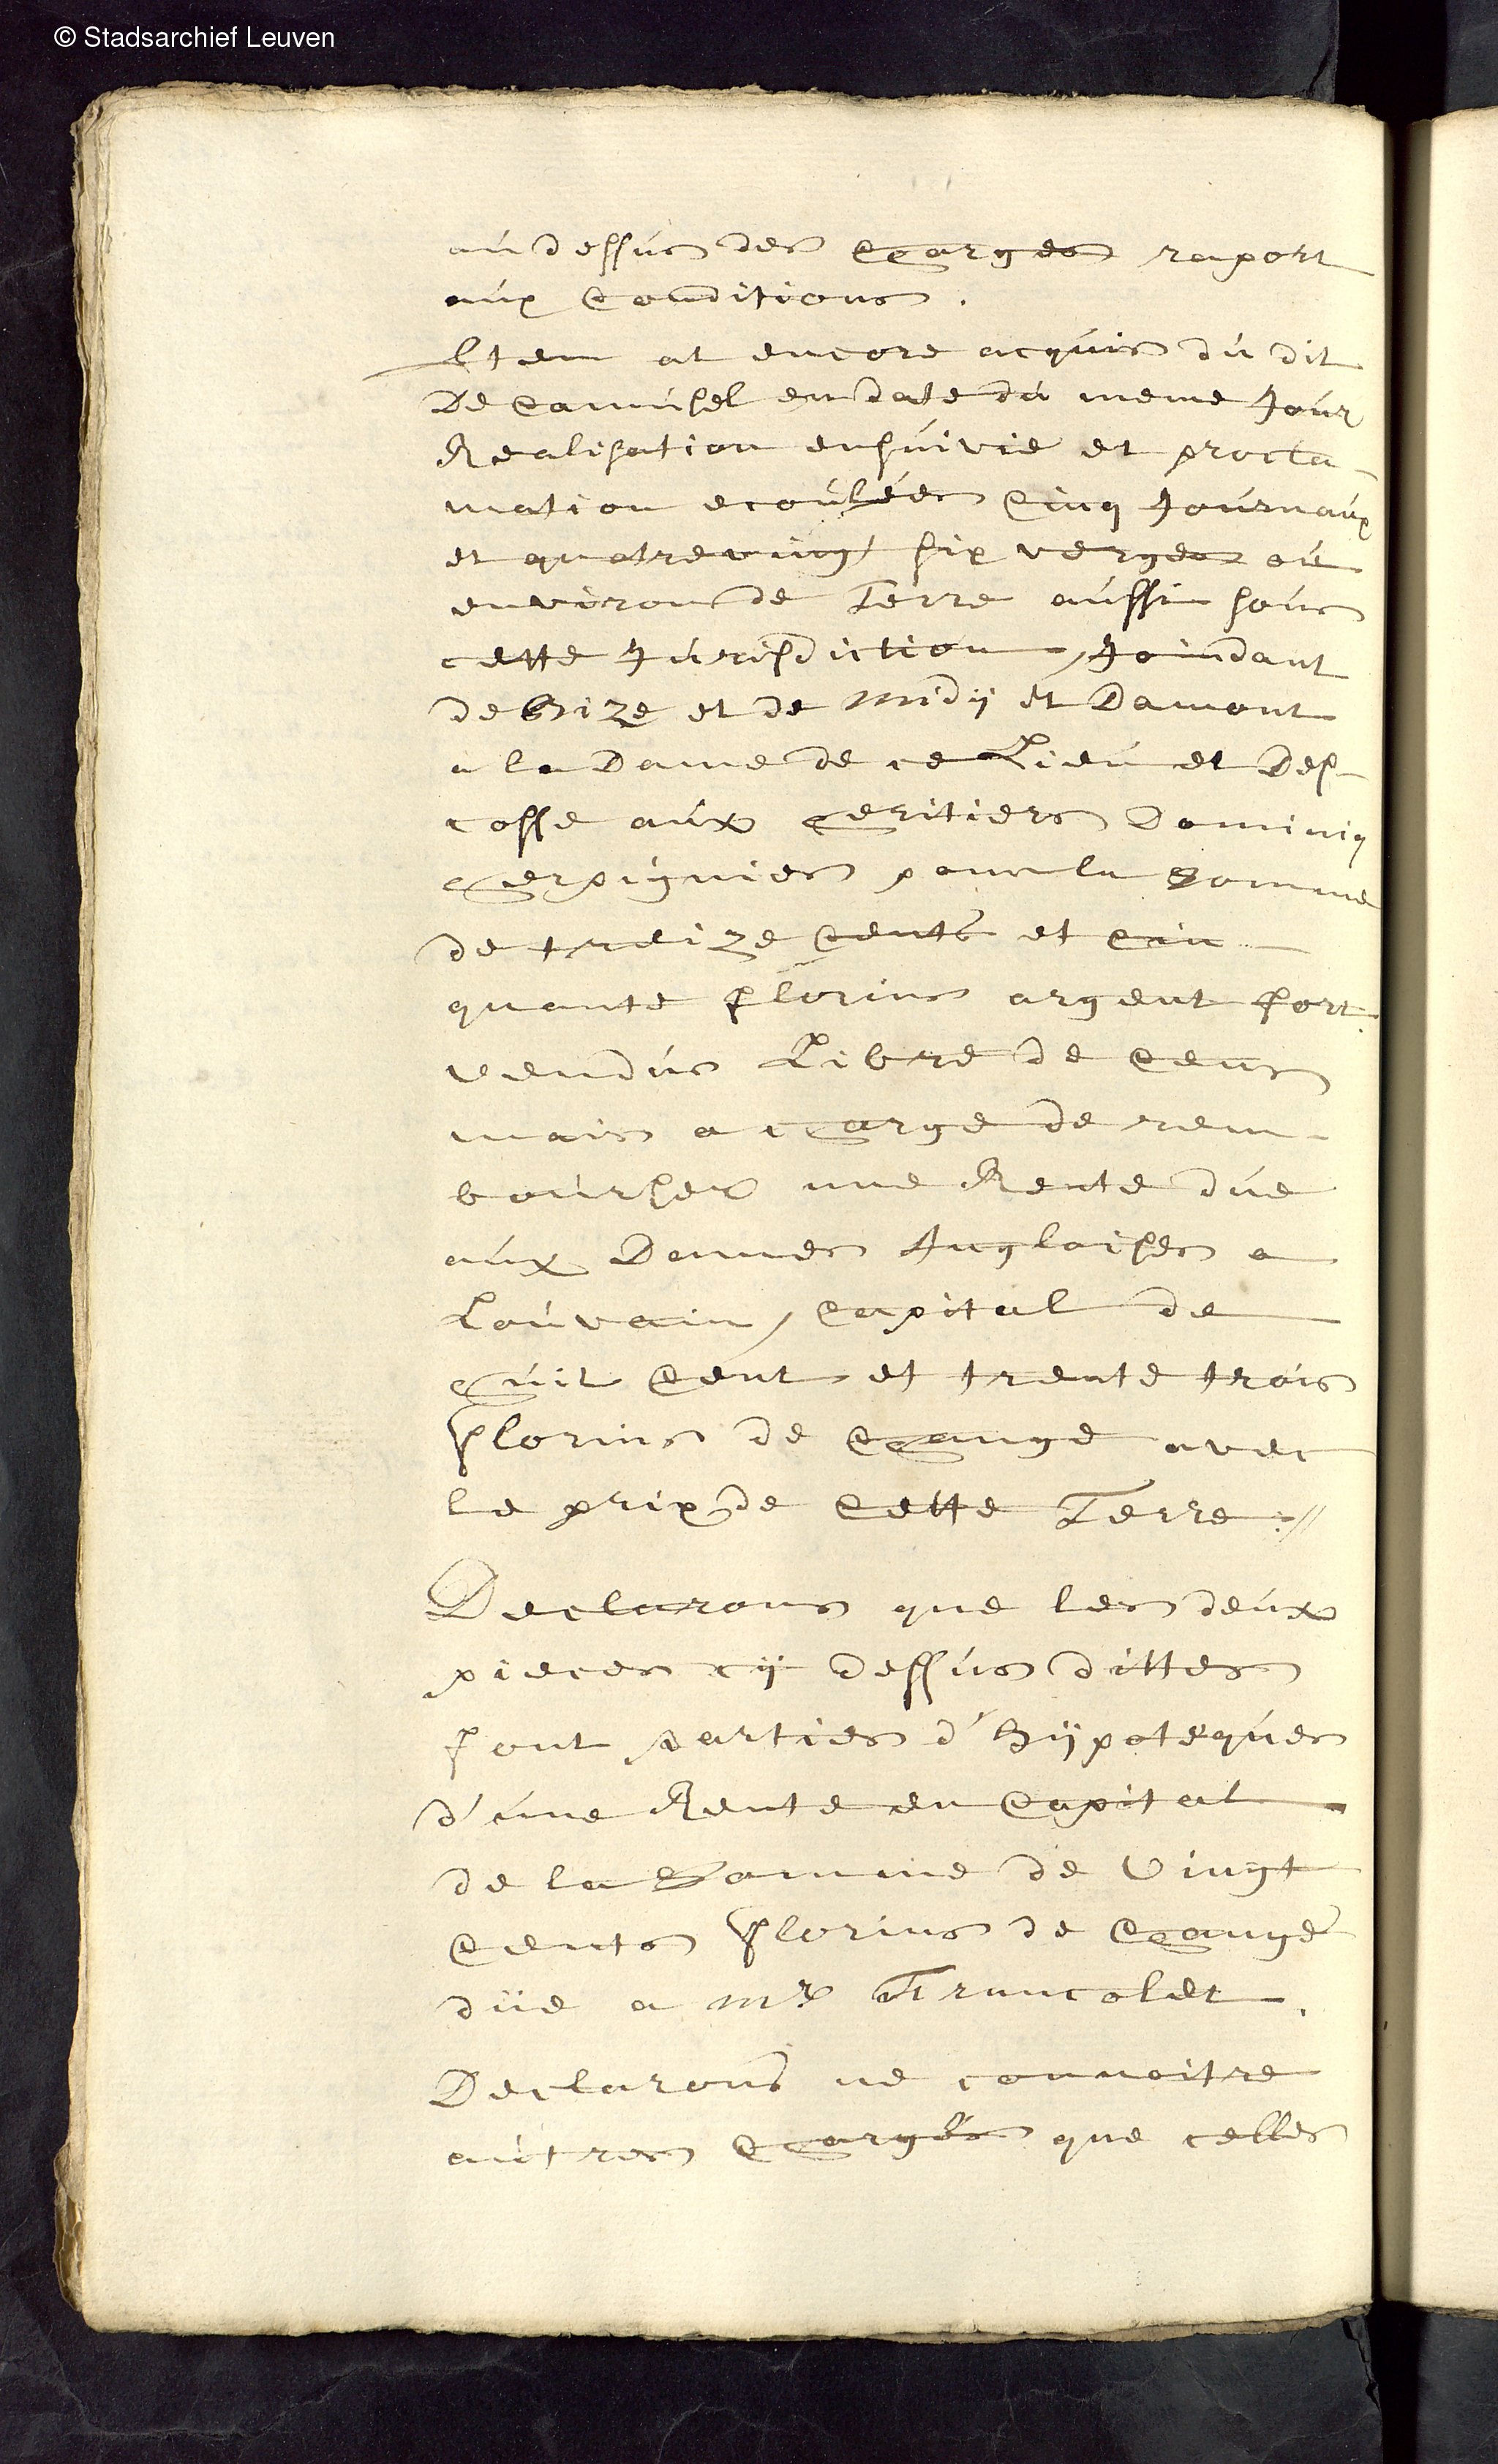 © Stadsarchief Leuven
au dessus des charges raport
aux conditions.
Item at encore acquis du dit
De camusel en date du meme Jour
Realisation ensuivie et procla-
mation ecoulées cinq Journaux
et quatre vingt six verges ou
environ de Terre aussi sous
cette Jurisdiction, Joindant
de bize et de midÿ et Damont
a la Dame de ce Lieu et Des-
cosse aux heritiers Dominiq
herpignies pour la somme
de treize cents et cin-
quante florins argent fort.
vendus Libre de cens
mais a charge de rem-
bourser une Rente due
aux Dames Anglaises a
Louvain, capital de
huit cent et trente trois
florins de change avec
le prix de cette Terre://
Declarons que les deux
pieces cÿ dessus dittes
sont parties d'hÿpoteques
d'une Rente en capital
de la somme de vingt
cents florins de change
düe a Mr Francolet.
Declarons ne connoitre
autres charges que celles